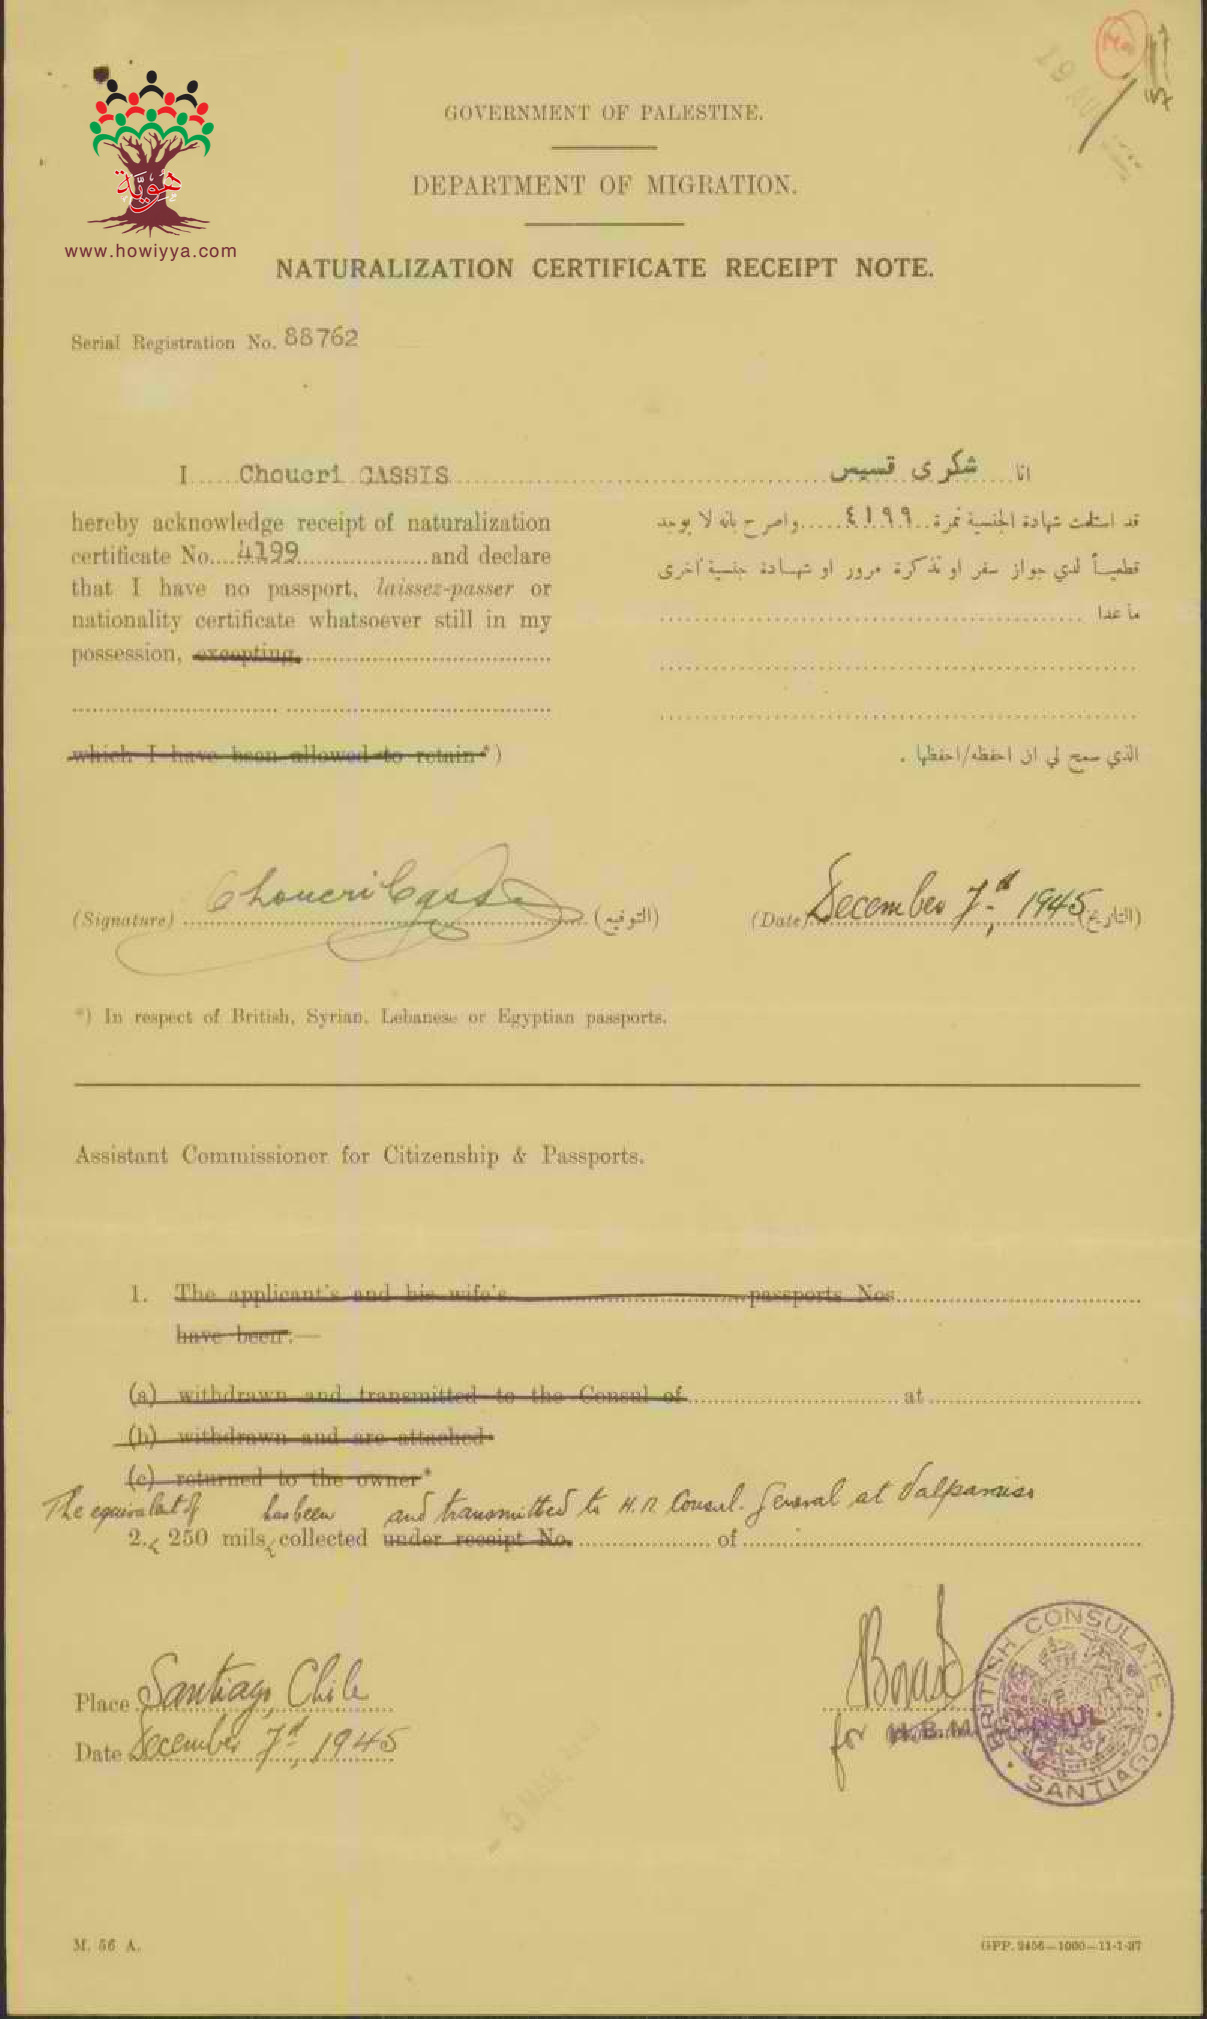 GOVERNMENT OF PALESTINE.
DEPARTMENT OF MIGRATION.
هويّة
www.howiyya.com
NATURALIZATION CERTIFICATE RECEIPT NOTE.
Serial Registration No. 88762
I Choucri CASSIS
hereby acknowledge receipt of naturalization
certificate No. 4199 and declare
that I have no passport, laissez-passer or
nationality certificate whatsoever still in my
possession, excepting
which I have been allowed to retain*)
انا شكرى قسيس
قد استلمت شهادة الجنسية نمرة ٤١٩٩ واصرح بانه لا يوجد
قطعياً لدي جواز سفر او تذكرة مرور او شهادة جنسية اخرى
ما عدا
الذي سمح لي ان احفظه/احفظها .
(Signature) Choucri Cassis (التوقيع)
(Date) December 7th, 1945 (التاريخ)
*) In respect of British, Syrian, Lebanese or Egyptian passports.
Assistant Commissioner for Citizenship & Passports.
1. The applicant's and his wife's passports Nos.
have been:—
(a) withdrawn and transmitted to the Consul of at
(b) withdrawn and are attached
(c) returned to the owner*
The equivalent of has been and transmitted to H.M. Consul-General at Valparaiso
2. 250 mils collected under receipt No. of
Place Santiago, Chile
Date December 7th, 1945
for H.B.M. CONSUL
BRITISH CONSULATE
SANTIAGO
5 MAR
M. 56 A.
GPP. 2456—1000—11-1-37